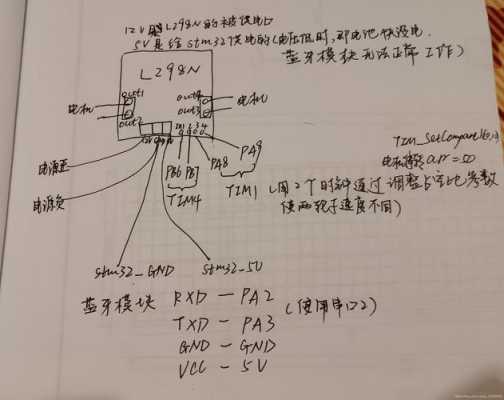 12V是L298N的被供电口
5V是给stm32供电的(电压低时,即电池快没电,
蓝牙模块无法正常工作)
L298N
out1
out2
out4
out3
电机
电机
电源正
电源负
PB6 PB7
TIM4
PA8 PA9
TIM1
(用2个时钟通过调整占空比参数
使两轮子速度不同)
TIM_SetCompare
arr=50
stm32_GND
stm32_5V
蓝牙模块 RXD — PA2
TXD — PA3
(使用串口2)
GND — GND
VCC — 5V